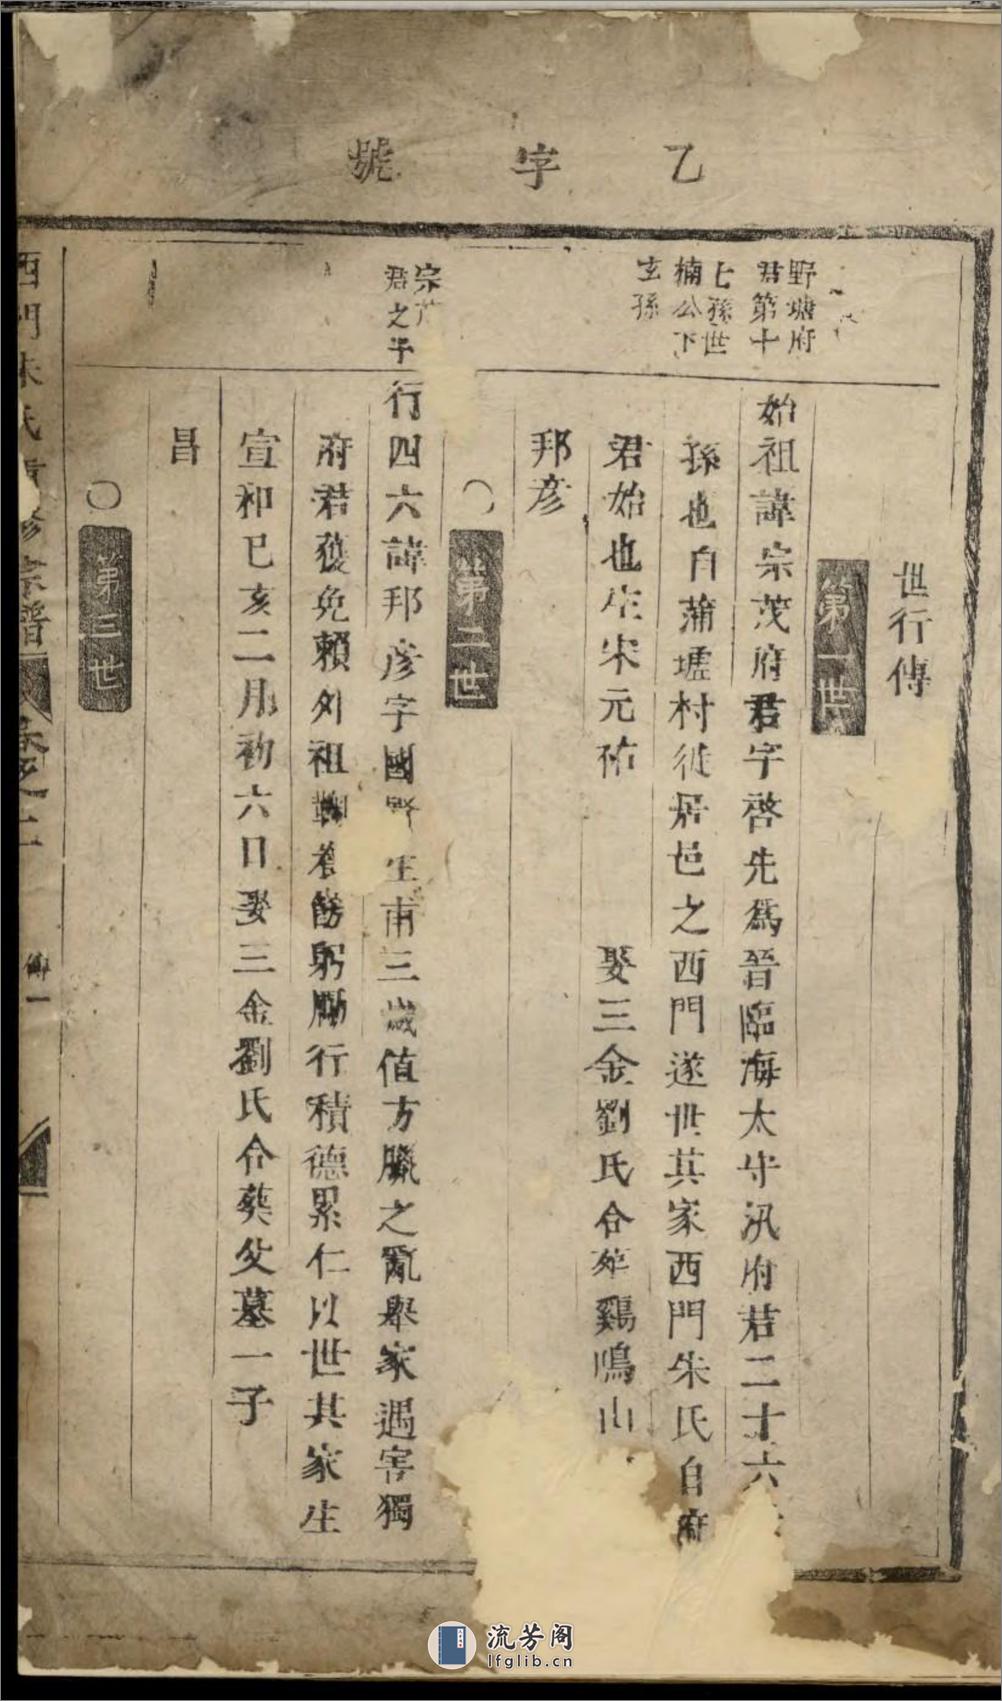 乙字號
世行傳
第一世
野塘府
君第十
七孫世
楠公下
玄孫
始祖諱宗茂府君字啓先爲晉臨海太守汎府君二十六
孫也自蒲墟村徙居邑之西門遂世其家西門朱氏自府
君始也生宋元祐 娶三金劉氏合葬鷄鳴山
邦彥
○第二世
宗
君之子
行四六諱邦彥字國 生甫三歲值方臘之亂舉家遇害獨
府君獲免賴外祖鞠養飭躬勵行積德累仁以世其家生
宣和己亥二月初六日娶三金劉氏合葬父墓一子
昌
○第三世
西門朱氏重修宗譜 卷之二
傳一
流芳阁
lfglib.cn